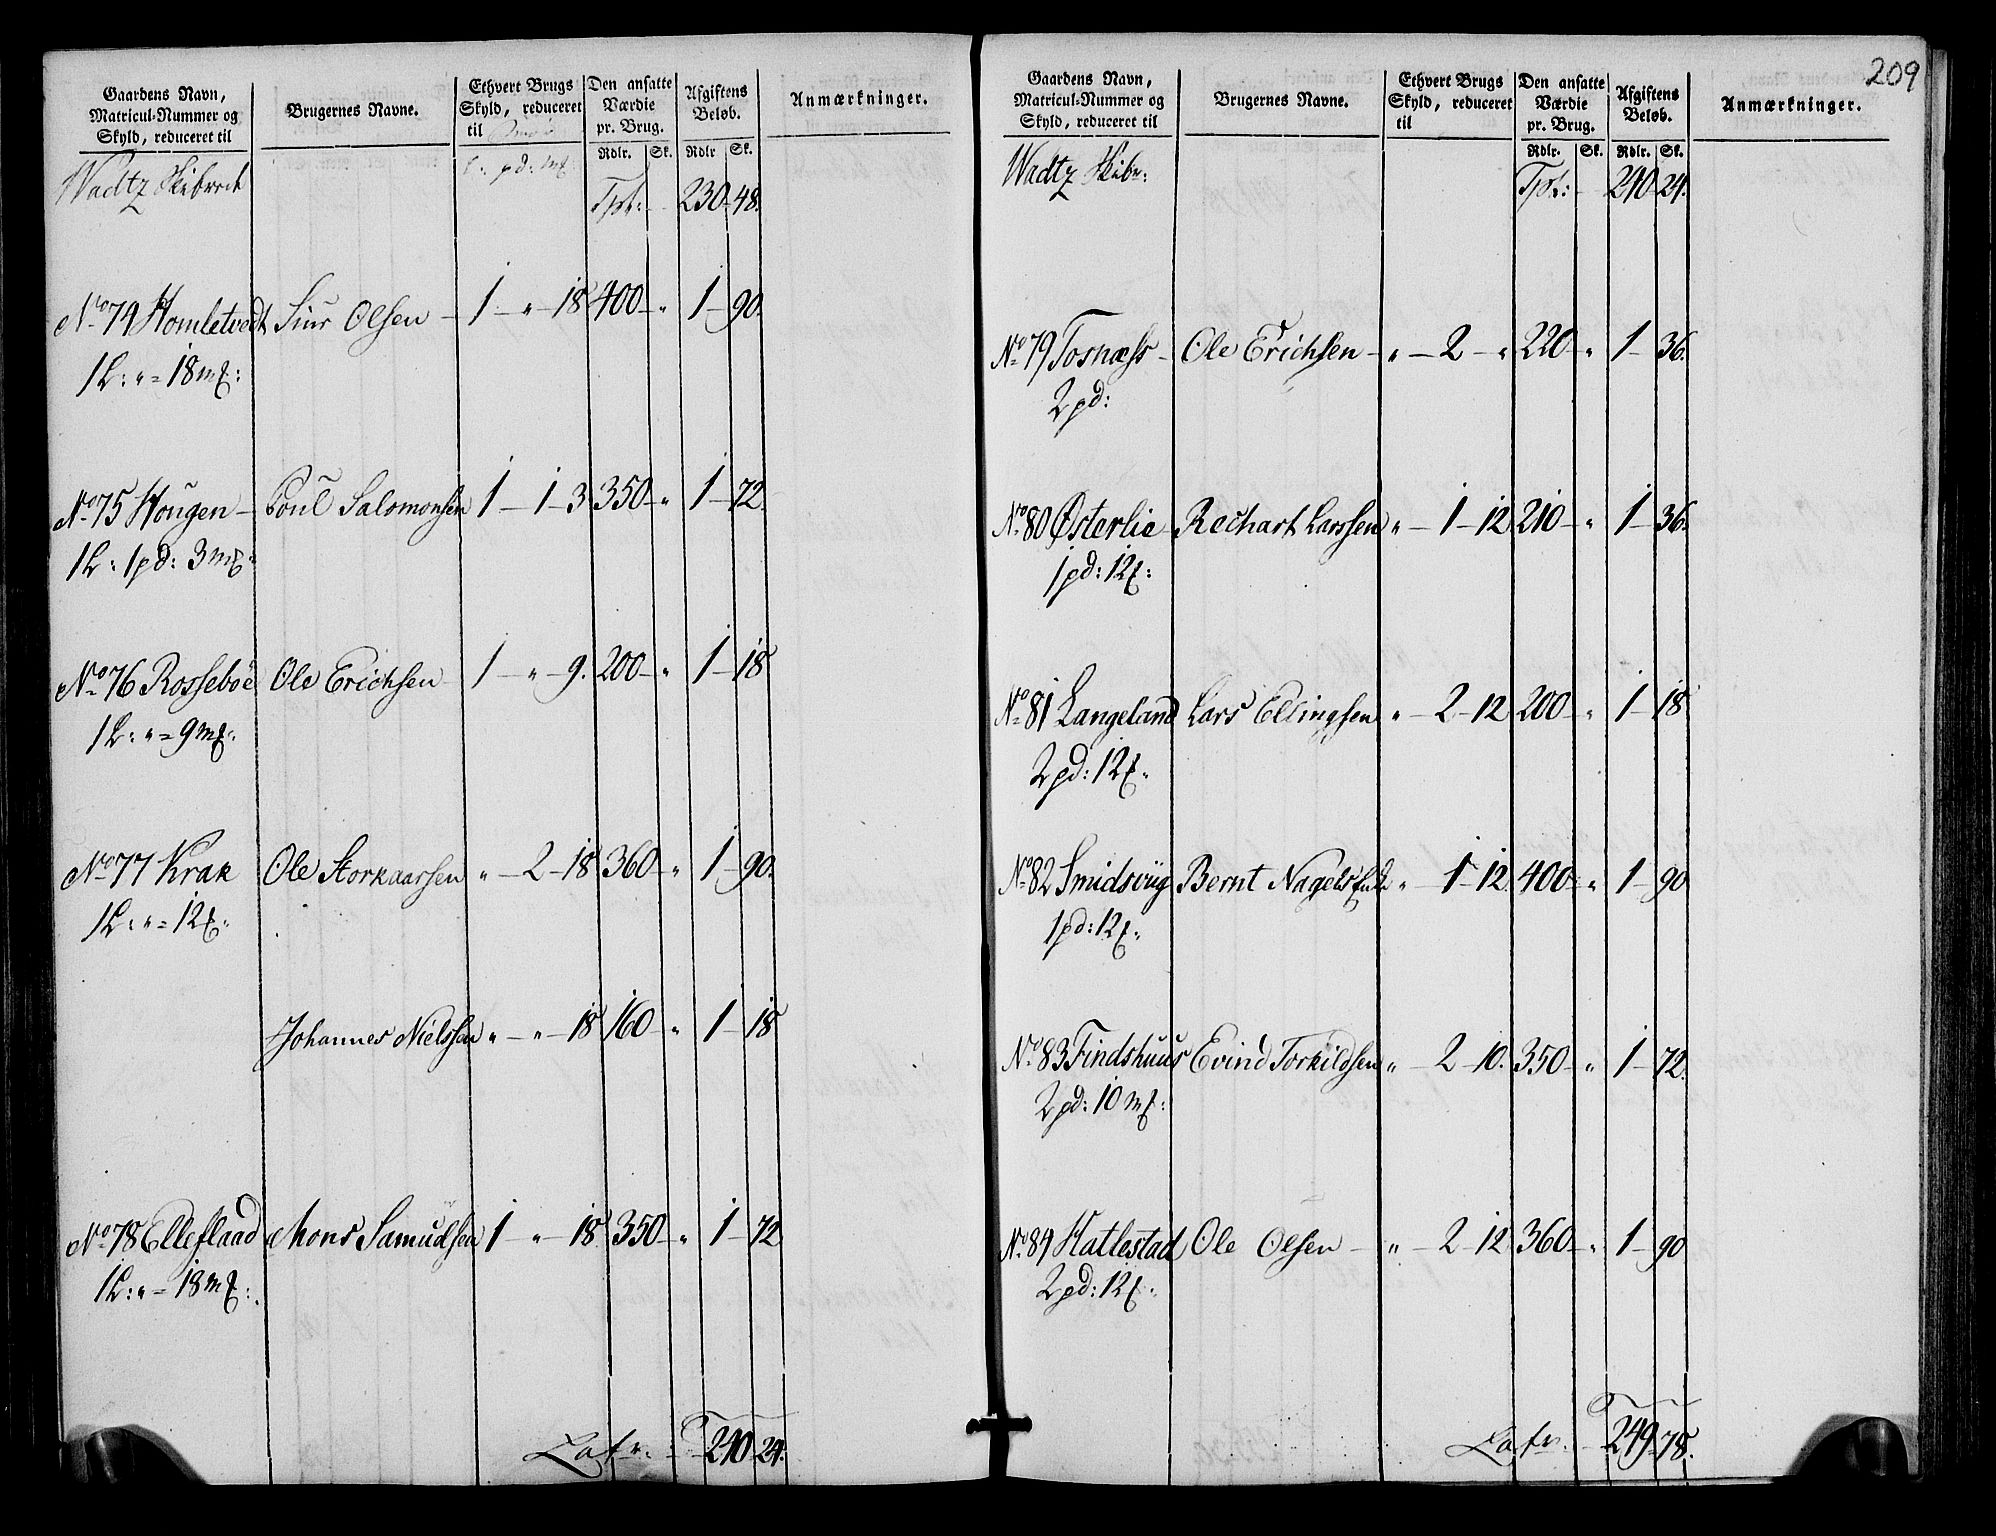 Gaardens Navn,
Matricul-Nummer og
Skyld, reduceret til
Brugernes Navne.
Ethvert Brugs
Skyld, reduceret
til
Den ansatte
Værdie
pr. Brug.
Afgiftens
Beløb.
Anmærkninger.
Rdlr. Sk. Rdlr Sk.
Wadtz Skibrede
L: pd: mk
Tpt: 230 48.
No 74 Homletvedt Siur Olsen 1 - " - 18 400 - " 1 - 90.
1 L: " = 18 mk:
No 75 Hougen Poul Salomonsen 1 - 1 - 3. 350 - " 1 - 72.
1 L: 1 pd: 3 mk:
No 76 Rossebøe Ole Erichsen 1 - " - 9. 200 - " 1 - 18
1 L: " = 9 mk:
No 77 Krak Ole Storkaarsen " - 2 - 18 360 - " 1 - 90.
1 L: " = 12 k:
Johannes Nielssen " - " - 18 160 - " 1 - 18
No 78 Elleflaad Mons Samuelsen 1 - " - 18 350 - " 1 - 72
1 L: " = 18 mk:
Lat: 240 24.
209
Gaardens Navn,
Matricul-Nummer og
Skyld, reduceret til
Brugernes Navne.
Ethvert Brugs
Skyld, reduceret
til
Den ansatte
Værdie
pr. Brug.
Afgiftens
Beløb.
Anmærkninger.
Rdlr. Sk. Rdlr. Sk.
Wadtz Skibr:
Tpt: 240 24.
No 79 Tosnæss Ole Erichsen " - 2 - " 220 - " 1 - 36.
2 pd:
No 80 Østerlie Rechart Larssen " - 1 - 12 210 - " 1 - 36.
1 pd: 12 k:
No 81 Langeland Lars Ellingsen " - 2 - 12 200 - " 1 - 18
2 pd: 12 k:
No 82 Smidsviig Bernt Nagels Enke " - 1 - 12 400 - " 1 - 90
1 pd: 12 k:
No 83 Findshuus Evind Torkildsen " - 2 - 10. 350 - " 1 - 72.
2 pd: 10 mk:
No 84 Hatlestad Ole Olsen " - 2 - 12 360 - " 1 - 90
2 pd: 12 k:
Lat: 249 78.